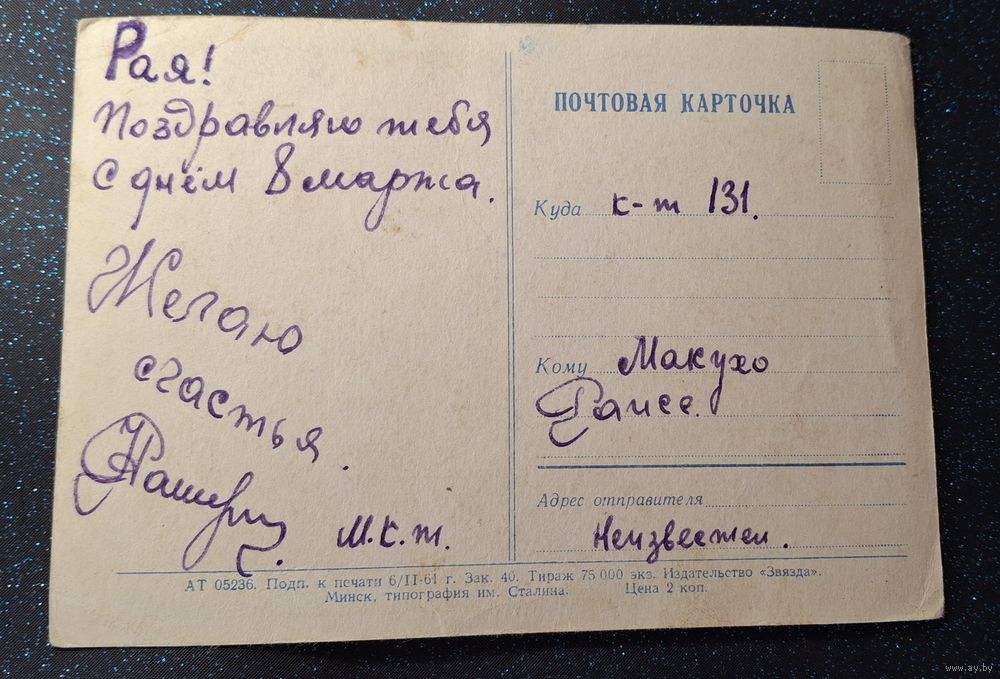 Рая!
Поздравляю тебя
с днём 8 марта.
Желаю
счастья.
М.К.т.
ПОЧТОВАЯ КАРТОЧКА
Куда к-т 131.
Кому Макухо
Раисе.
Адрес отправителя
Неизвестен.
АТ 05236. Подп. к печати 6/II-61 г. Зак. 40. Тираж 75 000 экз. Издательство «Звязда».
Минск, типография им. Сталина. Цена 2 коп.
www.ay.by